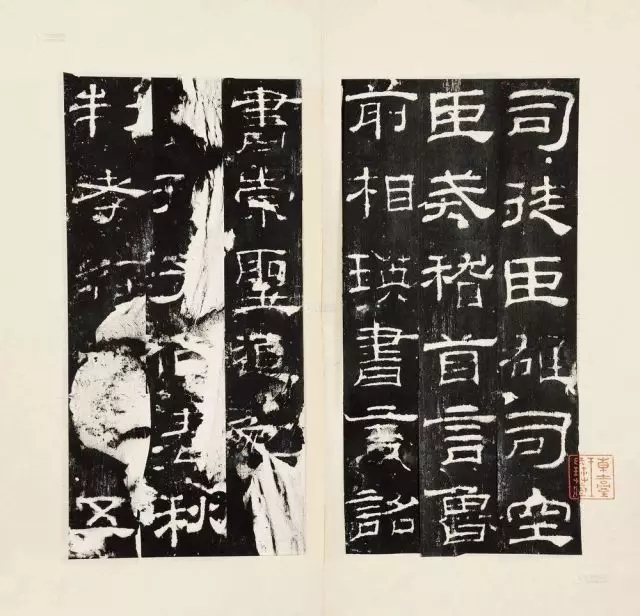 司徒臣雄司空
臣戒稽首言魯
前相瑛書言詔
書崇聖道勉
孔子作春秋
制孝五